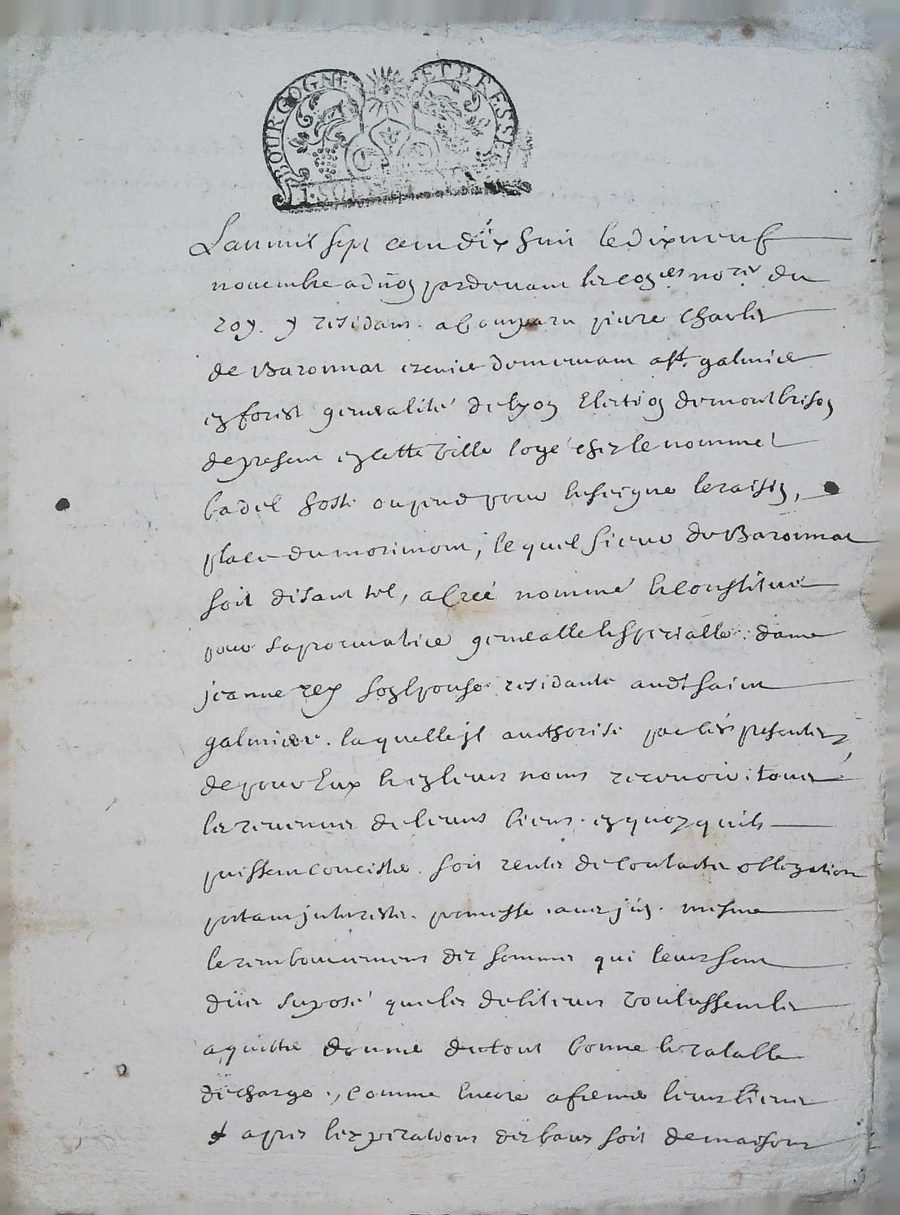 BOURGOGNE ET BRESSE
Lan mil sept cent dix huit le dix neuf
novembre a dijon pardevant les con.ers no.res du
roy y residans a comparu pierre Charles
de Baronnat ecuier demeurant a st. galmier
en forest generalité de lyon Election de montbrison
de present en cette ville logé chez le nommé
badel hoste ou pend pour enseigne le raisin,
place du morimont, lequel sieur de Baronnat
soit disant tel, a créé nommé et constitué
pour sa procuratrice generalle et specialle dame
jeanne rey son epouse residante audt saint
galmier laquelle jl authorise par les presentes
de pour Eux et en leurs noms recevoir touts
les revenus de leurs biens en quoy quils
puissent concister soit rentes de contracts obligations
portant interests promesse mesme
le remboursement des sommes qui leurs sont
dües suposé que les debiteurs voulussent les
aquitter donner du tout bonne et valable
decharge, comme encore afermer leurs biens
apres lexpirations des baux soit de maisons